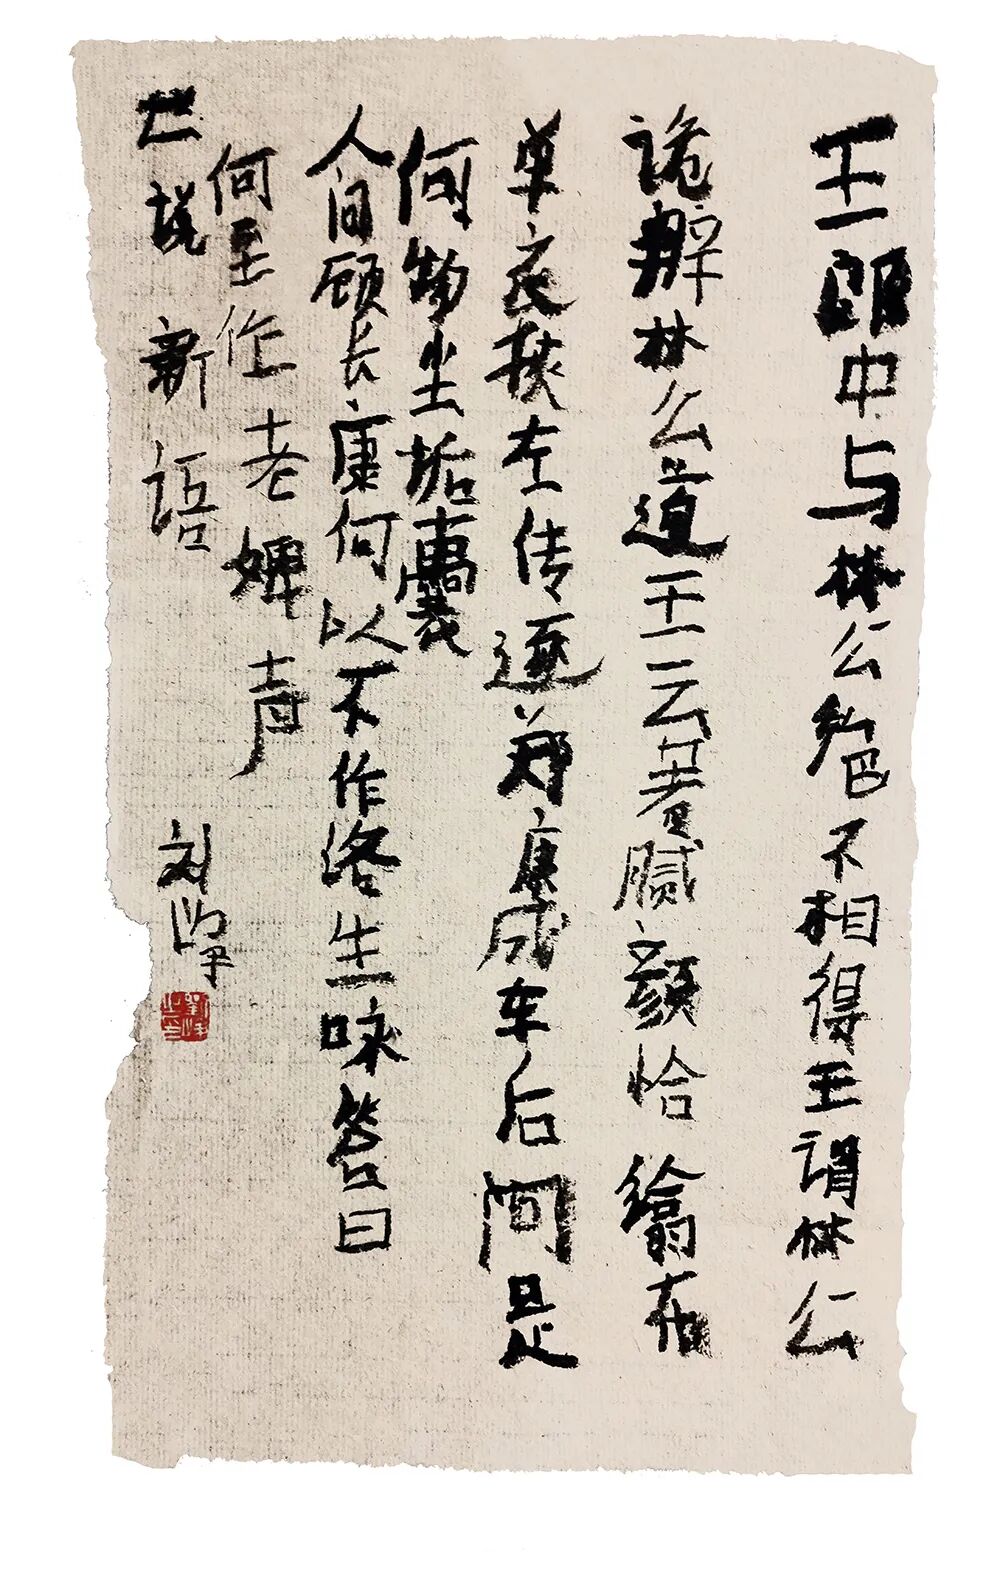 王郎中与林公绝不相得王谓林公
诡辩林公道王云著腻颜恰布
单衣挟左传逐郑康成车后问是
何物尘垢囊
人问顾长康何以不作洛生咏答曰
何至作老婢声
世说新语
刘